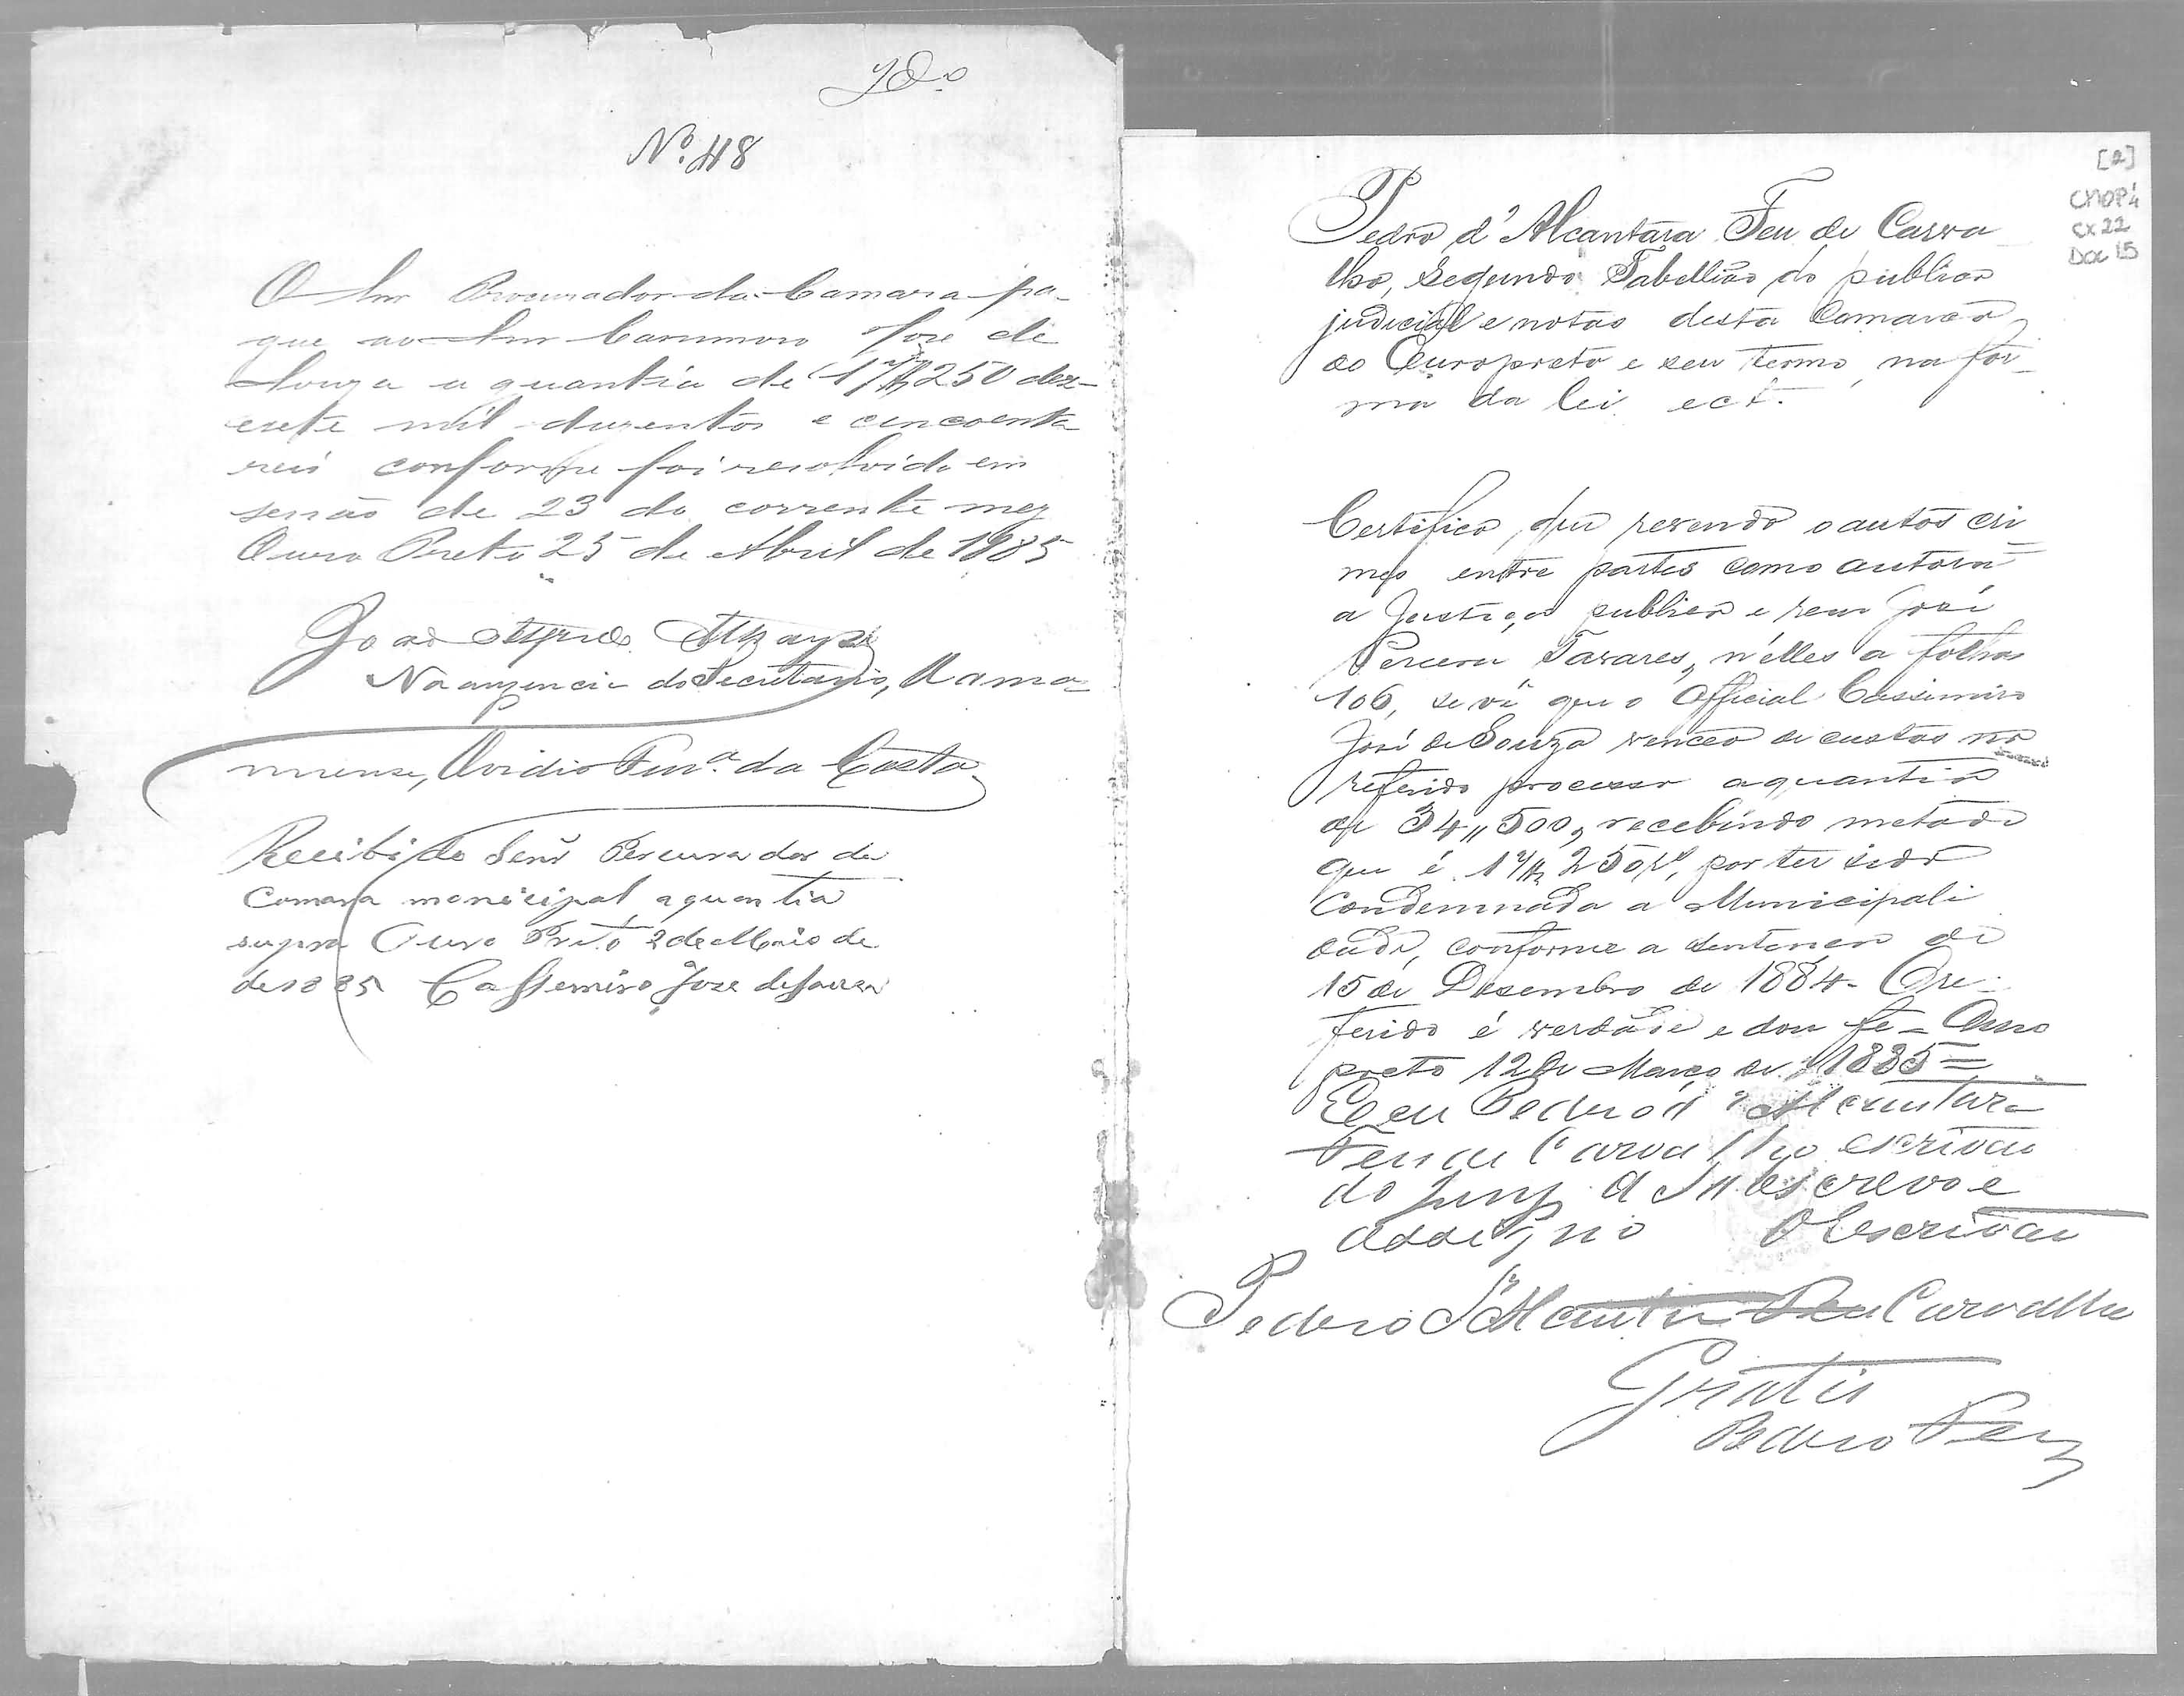 Nº. 48
O Snr Procurador da Camara pa-
gue ao Snr Casimiro Jose de
Souza a quantia de 17$250 dez-
esete mil duzentos e cincoenta
reis conforme foi resolvido em
sessão de 23 do corrente mez
Ouro Preto 25 de Abril de 1885
João
Na auzencia do Secretario, O ama-
nuense, Ovidio Fnr.ª da Costa
Recibi do Senr Percurador da
Comara menicipal a quantia
supra Ouro Preto 2 de Maio de
de 1885 Cassemiro Jose de Souza
[2]
CMOP
CX 22
Doc 15
Pedro d'Alcantara Feu de Carva
lho, Segundo Tabellião do publico
judicial e notas desta Comarca
do Ouropreto e seu termo, na for-
ma da lei ect.
Certifico, que revendo o autos cri
mes entre partes como autora
a Justiça publica e reu José
Pereira Tavares, n'elles a folhas
106, se vê que o Official Cassimiro
José de Souza venceo de custas no
referido processo a quantia
de 34,,500, recebindo metade
que é 17$250rs, por ter sido
Condemnada a Municipali
dade, conforme a sentença de
15 de Desembro de 1884. O re-
ferido é verdade e dou fe = Ouro
preto 12 de Março de 1885 =
E eu Pedro d'Alcantara
Feu de Carvalho escrivão
do Jury a subescrevo e
assigno O Escrivão
Pedro d'Alcantra Feu Carvalho
Gratis
Pedro Feu